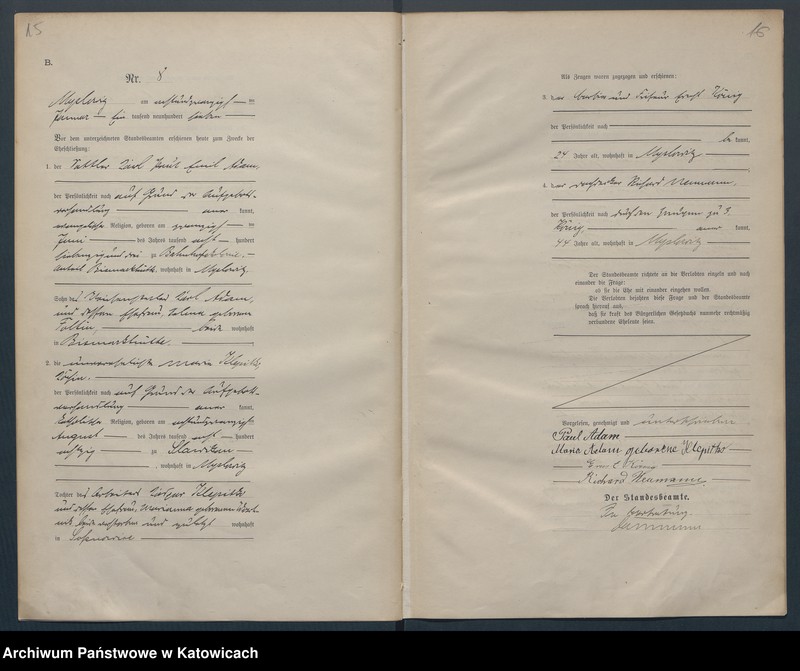 15
B.
Nr. 8
Myslowitz am achtundzwanzigsten
Januar ein tausend neunhundert sieben
Vor dem unterzeichneten Standesbeamten erschienen heute zum Zwecke der
Eheschließung:
1. der Sattler Carl Paul Emil Adam,
der Persönlichkeit nach auf Grund der Aufgebots-
verhandlung anerkannt,
evangelischer Religion, geboren am zwanzigsten
Juni des Jahres tausend acht hundert
zu
Bismarckhütte, wohnhaft in Myslowitz
Sohn des Carl Adam,
und dessen Ehefrau, geborenen
beide wohnhaft
in Bismarckhütte.
2. die unverehelichte Maria Klepitko,
der Persönlichkeit nach auf Grund der Aufgebots-
verhandlung anerkannt,
katholischer Religion, geboren am achtundzwanzigsten
August des Jahres tausend acht hundert
achtzig zu
, wohnhaft in Myslowitz
Tochter des Arbeiters Klepitko
und dessen Ehefrau, Marianna geborenen
beide verstorben und zuletzt wohnhaft
in
16
Als Zeugen waren zugezogen und erschienen:
3. der und Friseur König
der Persönlichkeit nach
bekannt,
24 Jahre alt, wohnhaft in Myslowitz
4. der Richard Neumann,
der Persönlichkeit nach durch den Zeugen zu 3,
König, anerkannt,
44 Jahre alt, wohnhaft in Myslowitz
Der Standesbeamte richtete an die Verlobten einzeln und nach
einander die Frage:
ob sie die Ehe mit einander eingehen wollen.
Die Verlobten bejahten diese Frage und der Standesbeamte
sprach hierauf aus,
daß sie kraft des Bürgerlichen Gesetzbuchs nunmehr rechtmäßig
verbundene Eheleute seien.
Vorgelesen, genehmigt und unterschrieben
Paul Adam
Maria Adam geborene Klepitko
König
Richard Neumann.
Der Standesbeamte.
In Vertretung.
Archiwum Państwowe w Katowicach